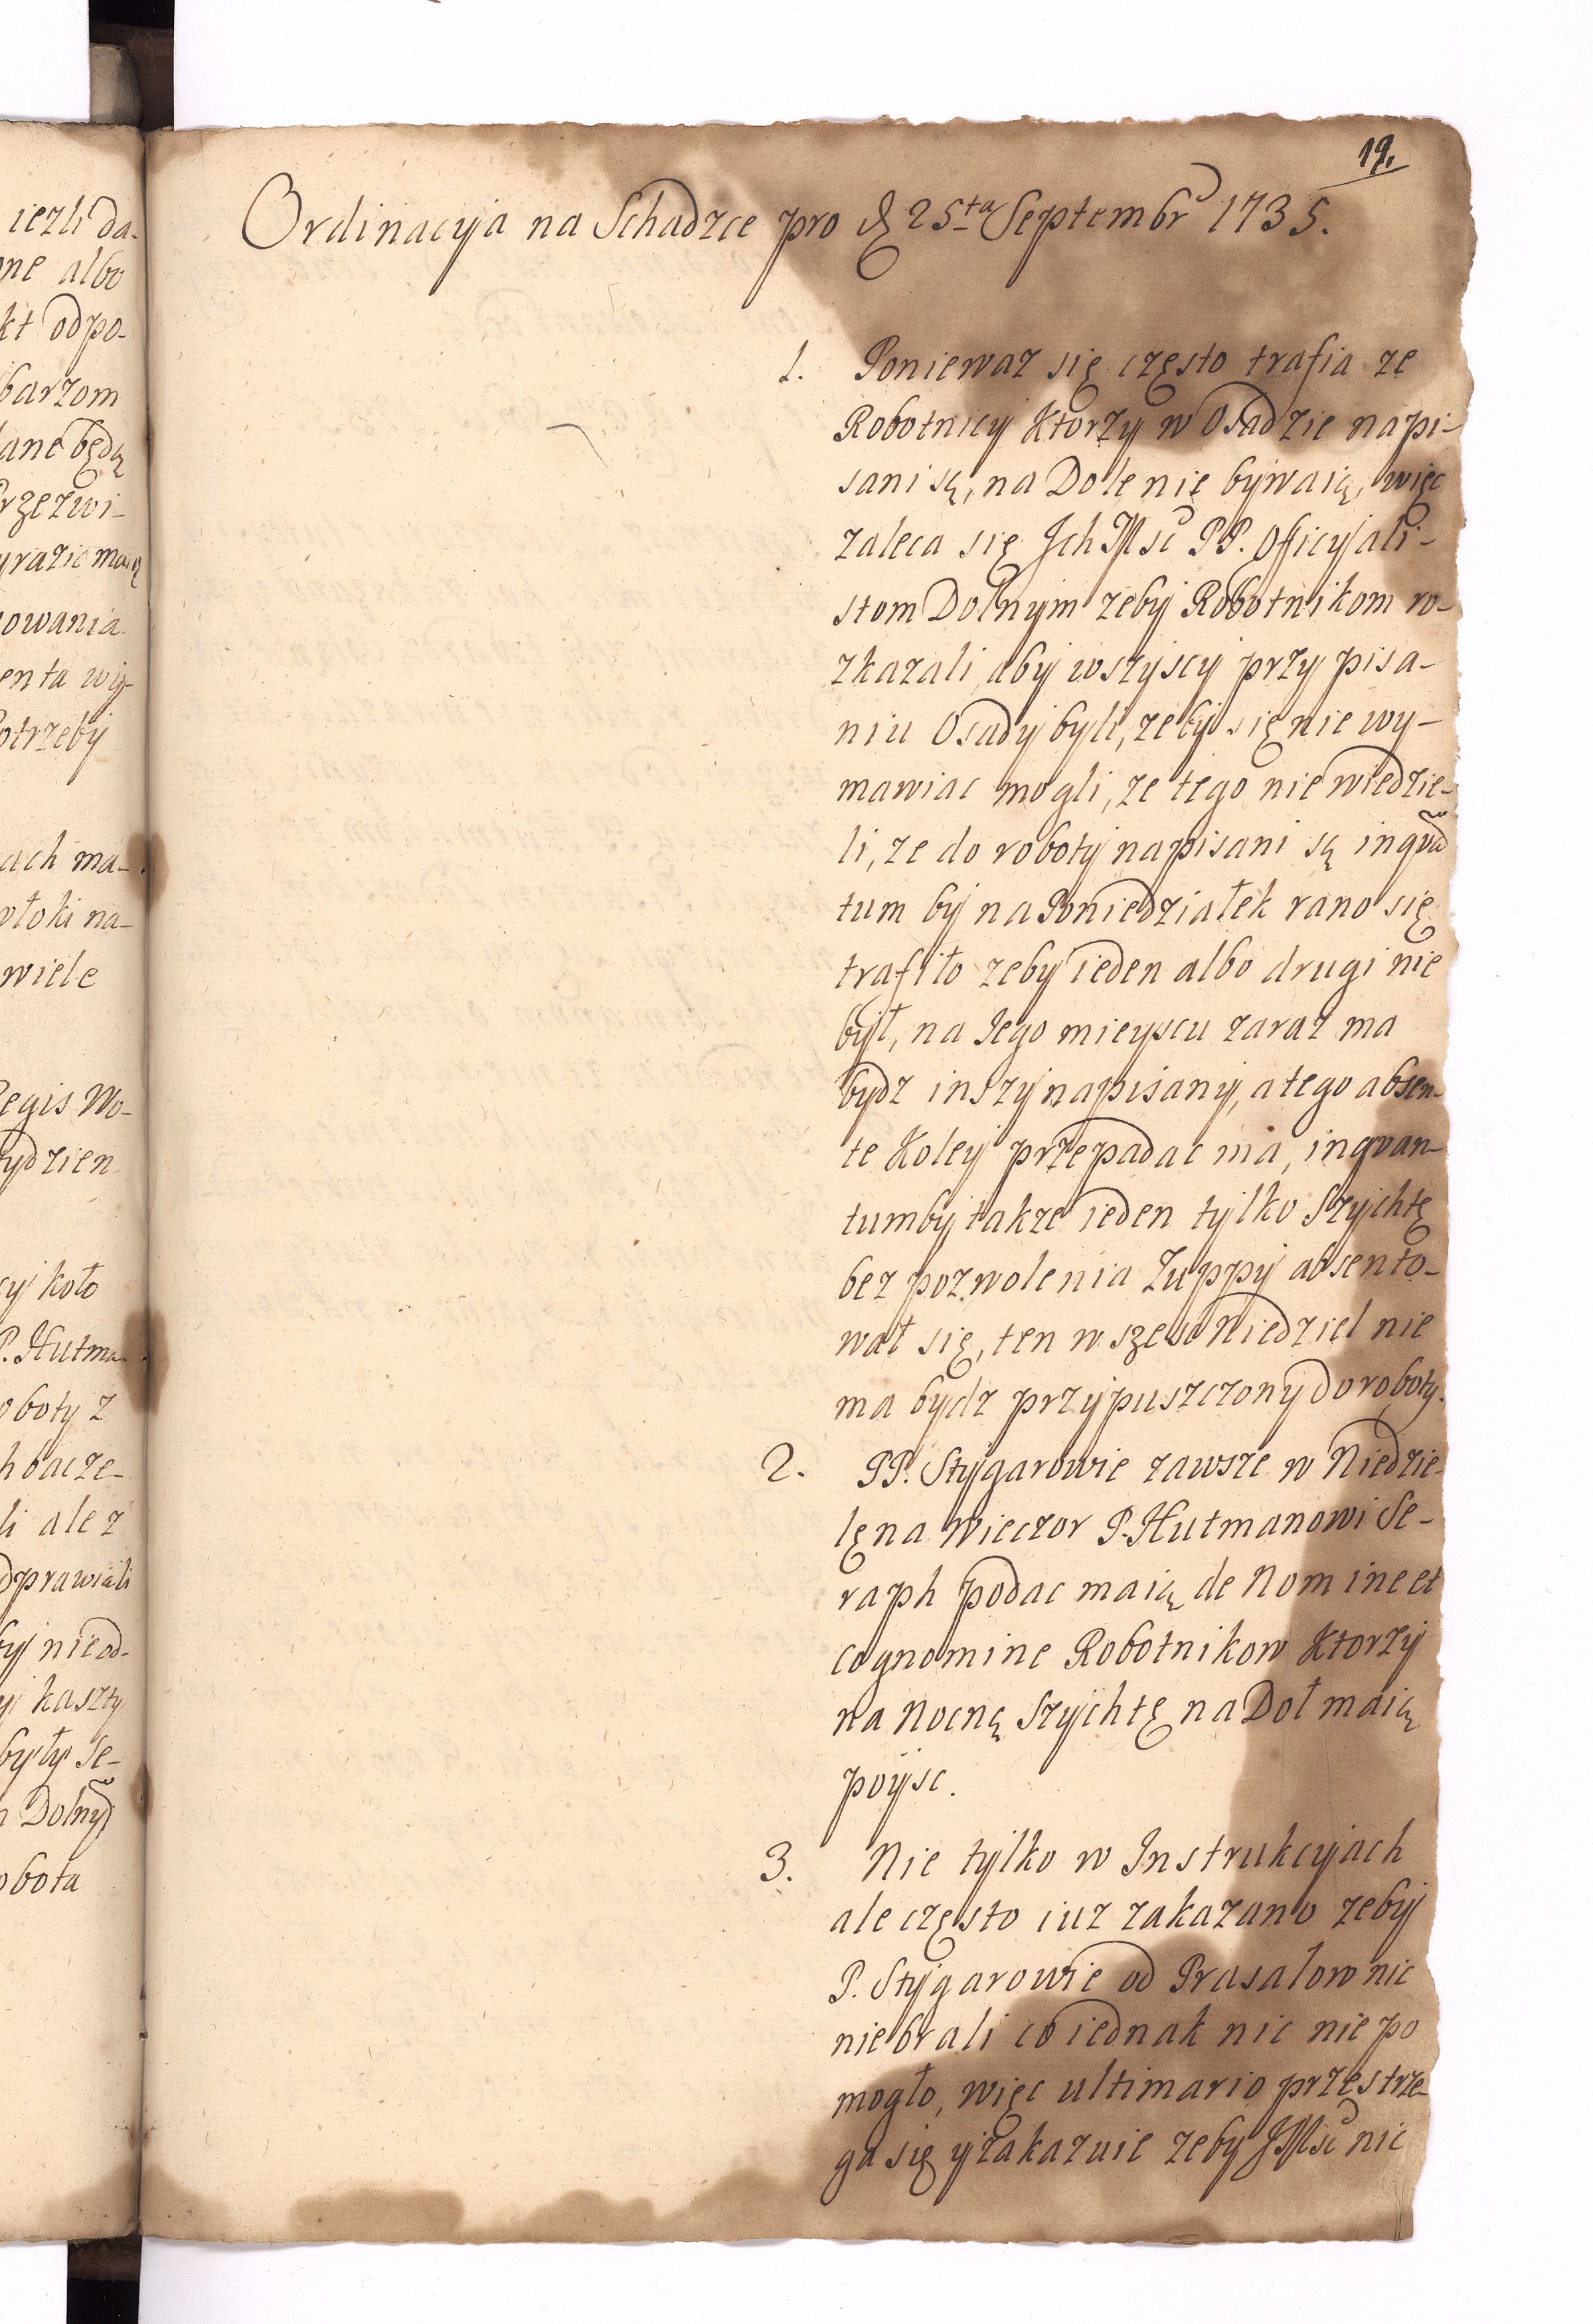 iezli da-
ne albo
kt odpo-
barzom
ane będą
rzezwi-
yrazic maią
owania
enta wy-
otrzeby
ach ma-
włoki na-
wiele
Regis Wo-
tydzien
cy koło
P. Hutma-
oboty z
h bacze-
li ale z
dprawiali
by nie od-
y kaszty
były Se-
Dolny
obota
19.
Ordinacyja na Schadzce pro d 25ta Septembr 1735.
1. Poniewaz się często trafia ze
Robotnicy Ktorzy w Osadzie napi-
sani są, na Dole nie bywaią, więc
zaleca się Jch Msc PP. Officyjali-
stom Dolnym zeby Robotnikom ro-
zkazali aby wszyscy przy pisa-
niu Osady byli, zeby się nie wy-
mawiac mogli, ze tego nie wiedzie-
li, ze do roboty napisani są inqua-
tum by na Poniedziałek rano się
trafiło zeby ieden albo drugi nie
był, na Jego mieyscu zaraz ma
bydz inszy napisany, a tego absen-
te Koley przepadac ma, inquan-
tumby takze ieden tylko Szychtę
bez pozwolenia Zuppy absento-
wał się, ten w szesc Niedziel nie
ma bydz przypuszczony do roboty.
2. PP. Stygarowie zawsze w Niedzie-
lę na Wieczor P. Hutmanowi Se-
raph podac maią de Nomine et
cognomine Robotnikow Ktorzy
na Nocną Szychtę na Doł maią
poysc.
3. Nie tylko w Instrukcyjach
ale często iuz zakazano zeby
P. Stygarowie od Prasałow nic
nie brali co iednak nic nie po
mogło, więc ultimario przestrze-
ga się y zakazuie zeby JMsc nic